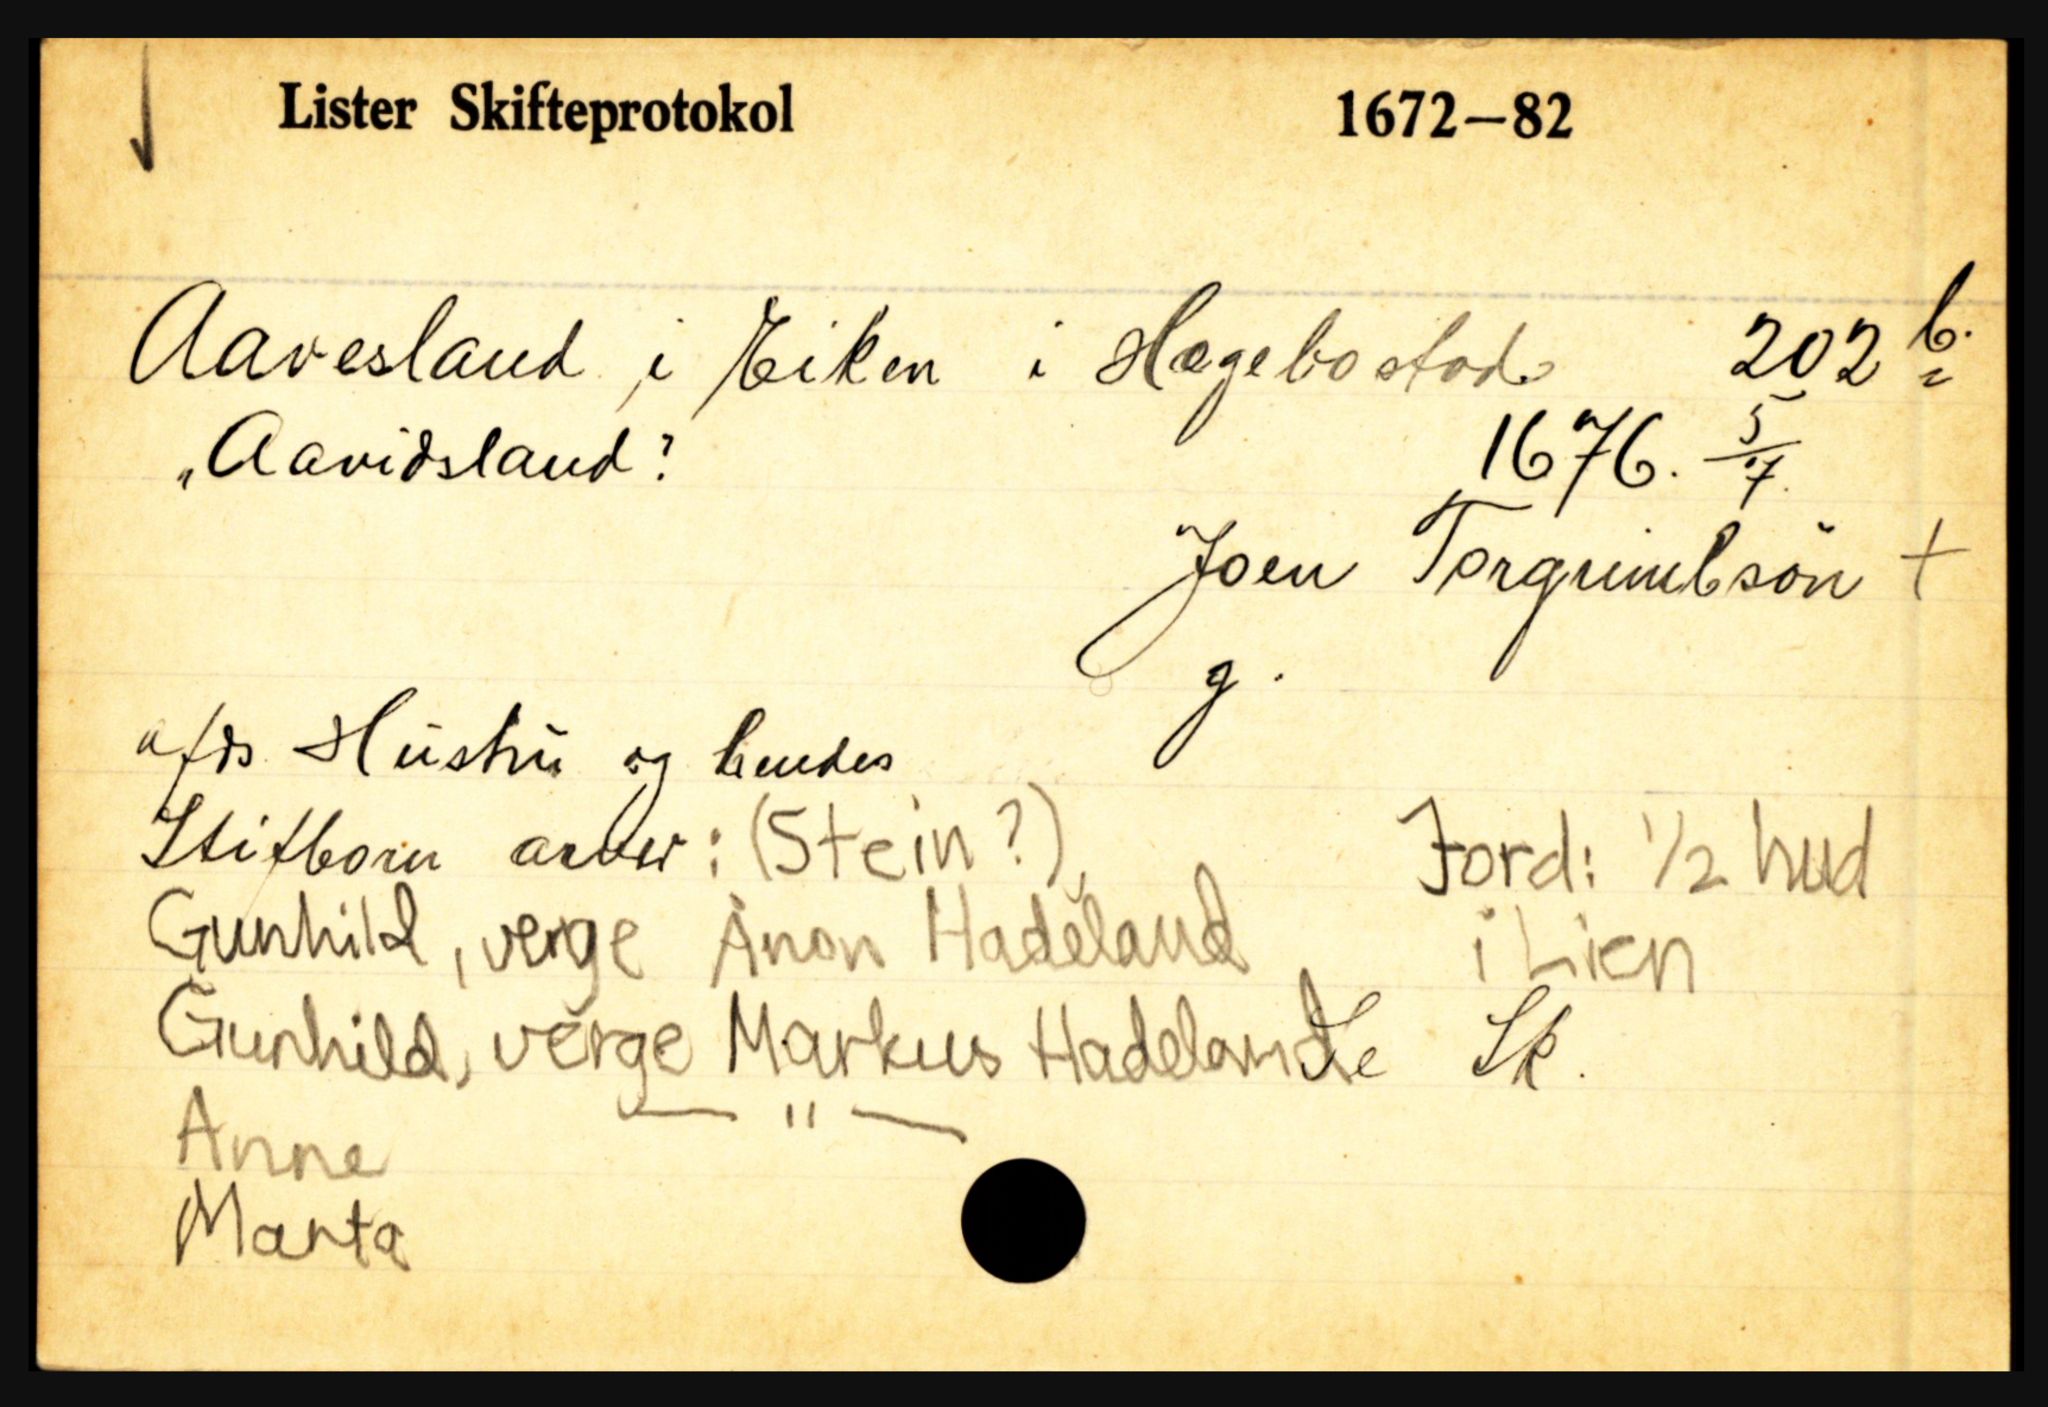 Lister Skifteprotokol 1672–82
Aavesland i Eiken i Hægebostad 202 b.
„Aavidsland? 1676. 5/7.
Joen Torgrimbsön +
g.
afds Hustru og hendes
Stifborn arver: (Stein?) Jord: 1/2 hud
Gunhild, verge Anon Hadeland i Lien
Gunhild, verge Markus Hadeland Se Sk.
Anne — " —
Marta